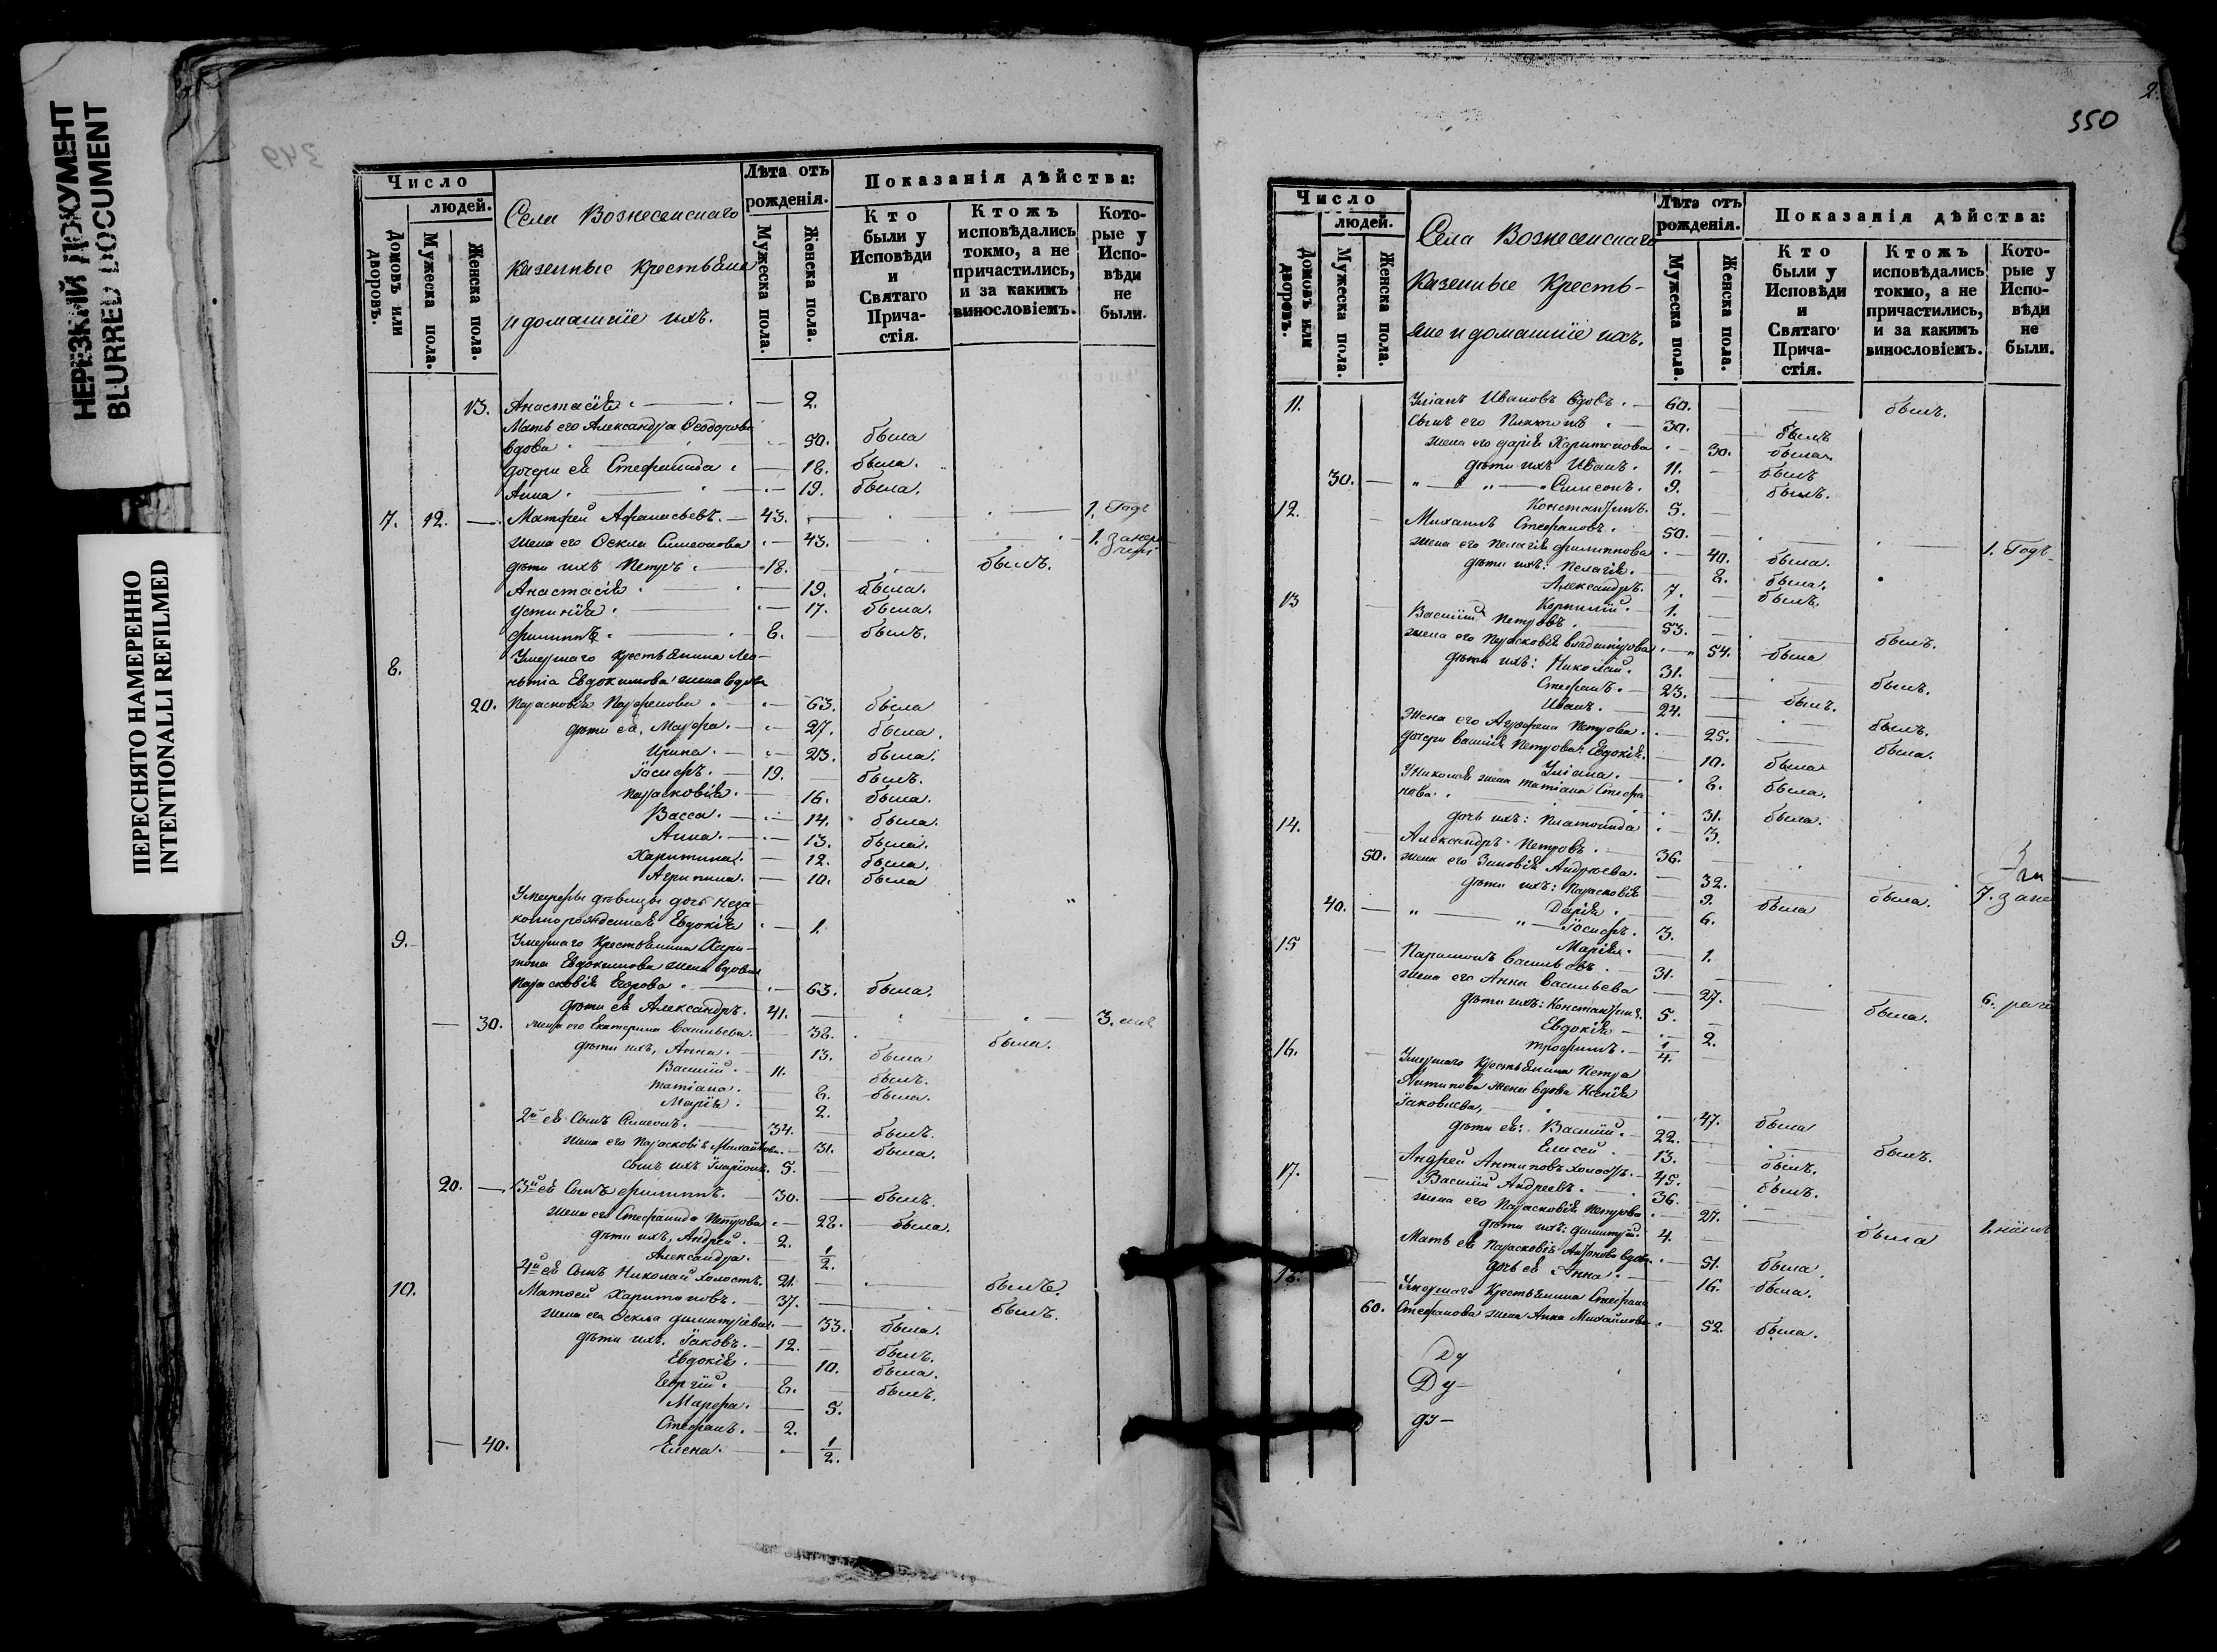 НЕРЕЗКИЙ ДОКУМЕНТ
BLURRED DOCUMENT
ПЕРЕСНЯТО НАМЕРЕННО
INTENTIONALLI REFILMED
349
Число
людей.
Домовъ или дворовъ.
Мужеска пола.
Женска пола.
Села Вознесенскаго
казенные Крестьяне
и домашніе ихъ.
Лѣта отъ рожденія.
Мужеска пола.
Женска пола.
Показанія дѣйства:
Кто были у Исповѣди и Святаго Причастія.
Ктожъ исповѣдались токмо, а не причастились, и за какимъ винословіемъ.
Которые у Исповѣди не были.
13. Анастасія. — 2.
Мать его Александра Ѳеодорова
вдова — 50. была
дочери ея Стефанида. — 18. была.
Анна. — 19. была.
7. 12. — Матфей Афанасьевъ. — 43. 1. Годъ
жена его Ѳекла Симеонова — 43. 1.
дѣти ихъ Петръ. — 18. былъ.
Анастасія. — 19. была.
Устинія. — 17. была.
Филиппъ. — 8. — былъ.
8. Умершаго крестьянина Лео-
нтіа Евдокимова жена вдова
20. Парасковія Парфенова. — 63. была
дѣти ея, Марфа. — 27. была.
Ирина. — 23. была.
Іосифъ. — 19. — былъ.
Парасковія. — 16. была.
Васса. — 14. была.
Анна. — 13. была.
Харитина. — 12. была.
Агрипина. — 10. была
Умершы дѣвицы дочь неза-
коннорожденная Евдокія — 1.
9. Умершаго Крестьянина Хари-
тона Евдокимова жена вдова
Парасковія Егорова. — 63. была.
дѣти ея Александръ. 41. — 3.
— 30. жена его Екатерина Васильева. 38. была.
дѣти ихъ, Анна. — 13. была
Василій. — 11. былъ.
Татіана. 8. была.
Марія. 2.
2й ея Сынъ Симеонъ. — 34. — былъ.
жена его Парасковія Михайлова. — 31. была.
сынъ ихъ Іларіонъ. 5. —
20. — 3й ея Сынъ Филиппъ. 30. — былъ.
жена его Стефанида Петрова. — 28. была.
дѣти ихъ, Андрей. — 2.
Александра. 1/2.
4й ея Сынъ Николай холостъ. 21. — былъ.
10. Матѳей Харитоновъ. — 37. — былъ.
жена его Ѳекла Димитріева. — 33. была.
дѣти ихъ. Іаковъ. — 12. — былъ.
Евдокія. — 10. была.
Георгій. 8. — былъ.
Марфа. — 5.
Стефанъ. — 2.
— 40. Елена. — 1/2.
2.
350
Число
людей.
Домовъ или дворовъ.
Мужеска пола.
Женска пола.
Села Вознесенскаго
казенные Кресть-
яне и домашніе ихъ.
Лѣта отъ рожденія.
Мужеска пола.
Женска пола.
Показанія дѣйства:
Кто были у Исповѣди и Святаго Причастія.
Ктожъ исповѣдались токмо, а не причастились, и за какимъ винословіемъ.
Которые у Исповѣди не были.
11. Уліанъ Ивановъ вдовъ. — 60. — былъ.
сынъ его Платонъ. — 30. — былъ
жена его Дарія Харитонова. — 30. была.
дѣти ихъ Иванъ. 11. — былъ
30. — " — " — " Симеонъ. 9. былъ.
Константинъ. 5. —
12. Михаилъ Стефановъ. 50. — 1. Годъ
жена его Пелагія Филиппова. — 40. была.
дѣти ихъ: Пелагія. — 8. была.
Александръ. 7. — былъ.
Корнилій. 1. —
13 Василій Петровъ. 53. — былъ.
жена его Парасковія Владимірова. — 54. была
дѣти ихъ: Николай. 31. — былъ.
Стефанъ. — 23. — былъ.
Иванъ. — 24. — былъ.
Жена его Агрофена Петрова. 25. — была.
дочери Василія Петрова: Евдокія. 10. была
Уліана. — 8. была.
У Николая жена Татіана Стефа-
нова. 31. была.
дочь ихъ: Платонида — 3.
14. Александръ Петровъ. 36. —
50. жена его Зиновія Андреева. — 32. была. 7.
дѣти ихъ: Парасковія — 9. была
40. — " — Дарія. — 6.
" — Іосифъ. 3.
Марія. — 1.
15 — Парамонъ Васильевъ. 31. — 6.
жена его Анна Васильева — 27. — была.
дѣти ихъ: Константинъ. 5. —
Евдокія — 2.
Трофимъ. 1/4. —
16. — Умершаго Крестьянина Петра
Антипова жена вдова Ксенія
Іаковлева, — 47. была
дѣти ея: Василій. 22. — былъ.
Елисей. 13. — былъ.
Андрей Антиповъ холостъ. 45. — былъ.
17. — Василій Андреевъ. 36. — 1.
жена его Парасковія Петрова. — 27. — была
дѣти ихъ: Димитрій. 4. —
Мать ея Парасковія Антонова вдова. — 51. была.
дочь ея Анна. — 16. была.
18. — Умершаго Крестьянина Стефана
60. Стефанова жена Анна Михайлова. 52. была.
Ду
Ду—
ду—